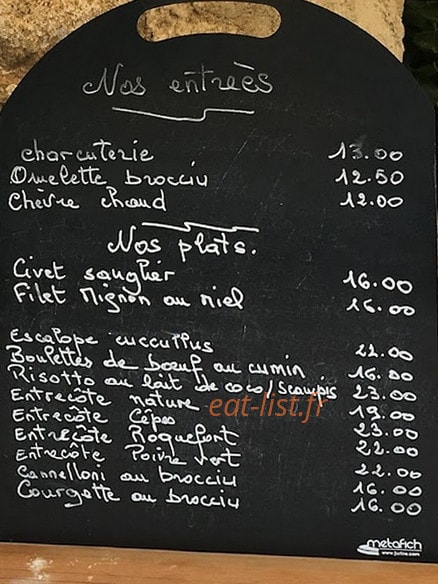 Nos entreès
charcuterie 13.00
Omelette brocciu 12.50
Chèvre chaud 12.00
Nos plats.
Civet sanglier 16.00
Filet Mignon au miel 16.00
Escalope cucullus 22.00
Boulettes de bœuf au cumin 16.00
Risotto au lait de coco/Scampis 23.00
Entrecôte nature 19.00
eat-list.fr
Entrecôte Cèpes 23.00
Entrecôte Roquefort 22.00
Entrecôte Poivre vert 22.00
Cannelloni au brocciu 16.00
Courgette au brocciu 16.00
metafich